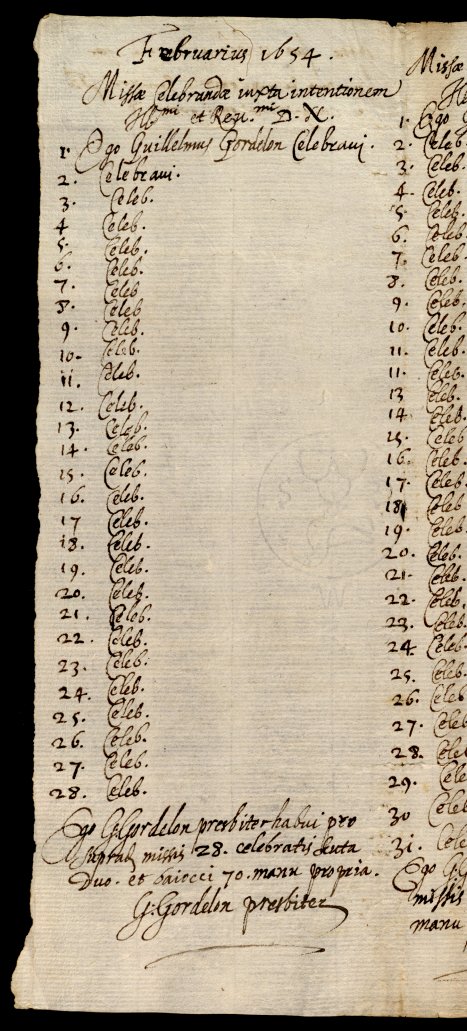 Februarius 1654.
Missæ Celebrandæ iuxta intentionem
Ill.mi et Reu.mi D. X.
1. Ego Guillelmus Gordelon Celebraui.
2. Celebraui.
3. Celeb.
4 Celeb.
5. Celeb.
6. Celeb.
7. Celeb
8. Celeb
9. Celeb.
10. Celeb.
11. Celeb.
12. Celeb.
13. Celeb.
14. Celeb.
15. Celeb.
16. Celeb.
17 Celeb.
18. Celeb.
19. Celeb.
20. Celeb.
21. Celeb.
22. Celeb.
23. Celeb.
24. Celeb.
25. Celeb.
26. Celeb.
27. Celeb.
28. Celeb.
Ego G. Gordelon presbiter habui pro
suprad. missis 28. celebratis scuta
Duo. et baiocci 70. manu propria.
G. Gordelon presbiter
Missæ
1. Ego
2. Celeb.
3. Celeb.
4. Celeb.
5. Celeb.
6. Celeb.
7. Celeb.
8. Celeb.
9. Celeb.
10. Celeb.
11. Celeb.
11. Celeb.
13 Celeb.
14 Celeb.
15. Celeb
16. Celeb.
17. Celeb.
18 Celeb
19. Celeb.
20. Celeb.
21. Celeb.
22. Celeb.
23. Celeb.
24. Celeb.
25. Celeb.
26. Celeb
27. Celeb
28. Cele
29. Cele
30 Celeb
31. Cele
Ego G. G
missis
manu